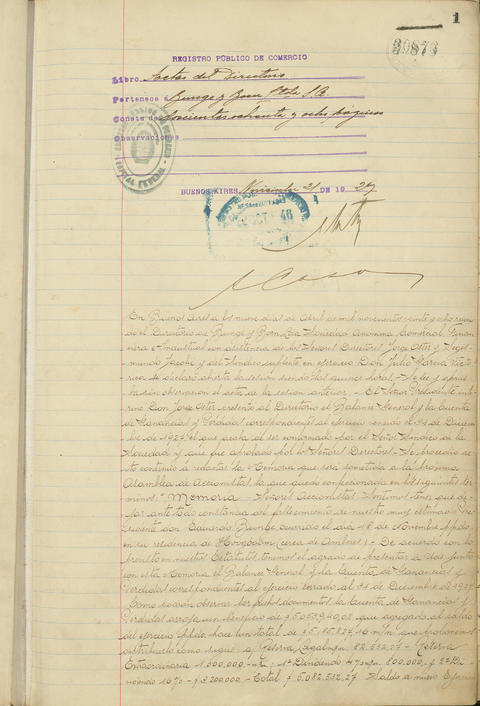 1
39873
REGISTRO PÚBLICO DE COMERCIO
Libro Actas del Directorio
Pertenece a Bunge y Born Ltda S.A.
Consta de doscientas ochenta y ocho páginas
Observaciones
BUENOS AIRES, Noviembre 21 de 1927
En Buenos Aires a los nueve días de Abril de mil novecientos veinte y ocho reuni-
do el Directorio de Bunge y Born Lda Sociedad Anónima Comercial, Finan-
ciera e Industrial con asistencia de los Señores Directores Jorge Oster y Segis-
mundo Jacobi y del Síndico suplente en ejercicio Don Julio García Victo-
rica se declaró abierta la sesión siendo las quince horas. - Se lee y aprue-
ba sin observación el acta de la sesión anterior. - El Señor Presidente inte-
rino Don Jorge Oster presenta al Directorio el Balance General y la Cuenta
de Ganancias y Pérdidas correspondiente al ejercicio vencido el 31 de Diciem-
bre de 1927 el que acaba de ser conformado por el Señor Síndico de la
Sociedad y que fué aprobado por los Señores Directores. - Se procedió
de continuo a redactar la Memoria que será sometida a la próxima
Asamblea de Accionistas la que quedó confeccionada en los siguientes tér-
minos: "Memoria - Señores Accionistas: Sentimos tener que de-
jar ante todo constancia del fallecimiento de nuestro muy estimado Pre-
sidente don Eduardo Bunge ocurrido el día 18 de Noviembre ppdo
en su residencia de Hoogboom (cerca de Amberes). - De acuerdo con lo
prescrito en nuestros Estatutos tenemos el agrado de presentar a Uds. junto
con esta Memoria el Balance General y la Cuenta de Ganancias y
Pérdidas correspondientes al ejercicio cerrado al 31 de Diciembre de 1927.
Como podrán observar los dichos documentos la Cuenta de Ganancias y
Pérdidas arroja un beneficio de $ que agregado al saldo
del ejercicio ppdo. hace un total de $ m/n que proponemos
distribuirlo como sigue: a/ Reserva Legal m/n 82.532,27 - Reserva
Extraordinaria 1.000.000.- 1er Dividendo 4% m/n 800.000, 2º Di-
videndo 16% - $ 3.200.000 - Total $ 5.082.532,27 Saldo a nuevo Ejercicio